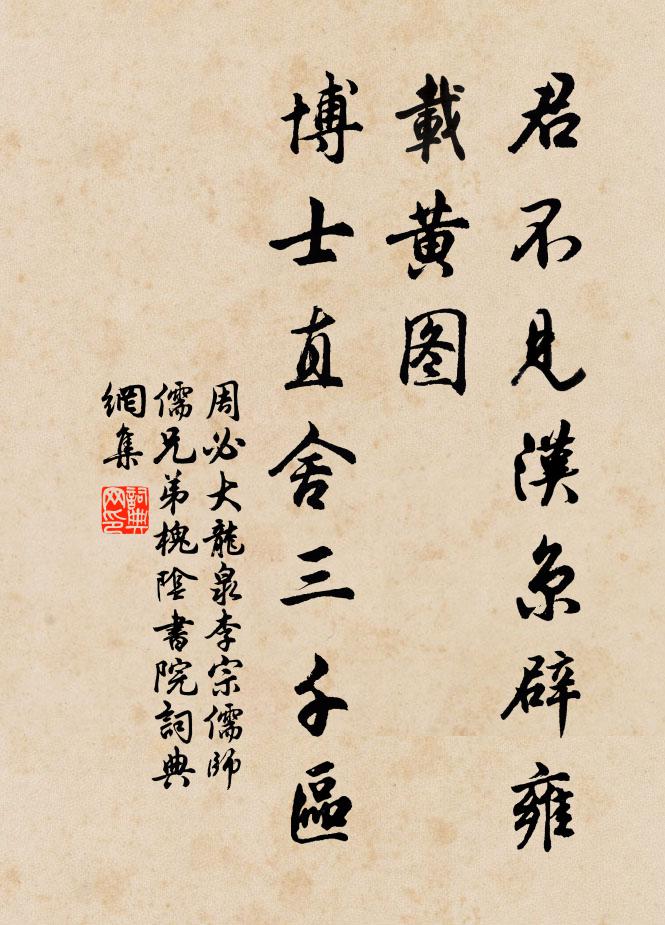 君不見漢京辟雍
載黄图
博士直舍三千區
周必大龍泉李宗儒師
儒兄弟槐陰書院詞典
網集
詞典
网印